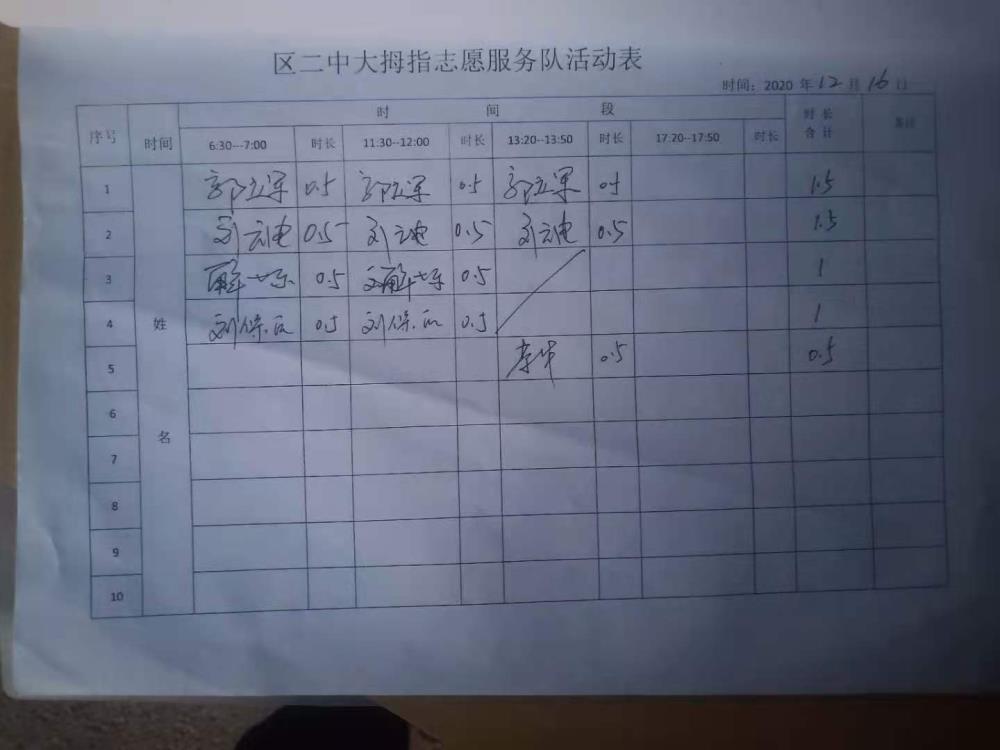 区二中大拇指志愿服务队活动表
时间：2020 年 12 月 16 日
序号 时间 时 间 段 时长合计 备注
6:30---7:00 时长 11:30--12:00 时长 13:20--13:50 时长 17:20--17:50 时长
姓名
1 郭立军 0.5 郭立军 0.5 郭立军 0.5 1.5
2 刘云电 0.5 刘云电 0.5 刘云电 0.5 1.5
3 0.5 0.5 1
4 刘保 0.5 刘保 0.5 1
5 0.5 0.5
6
7
8
9
10